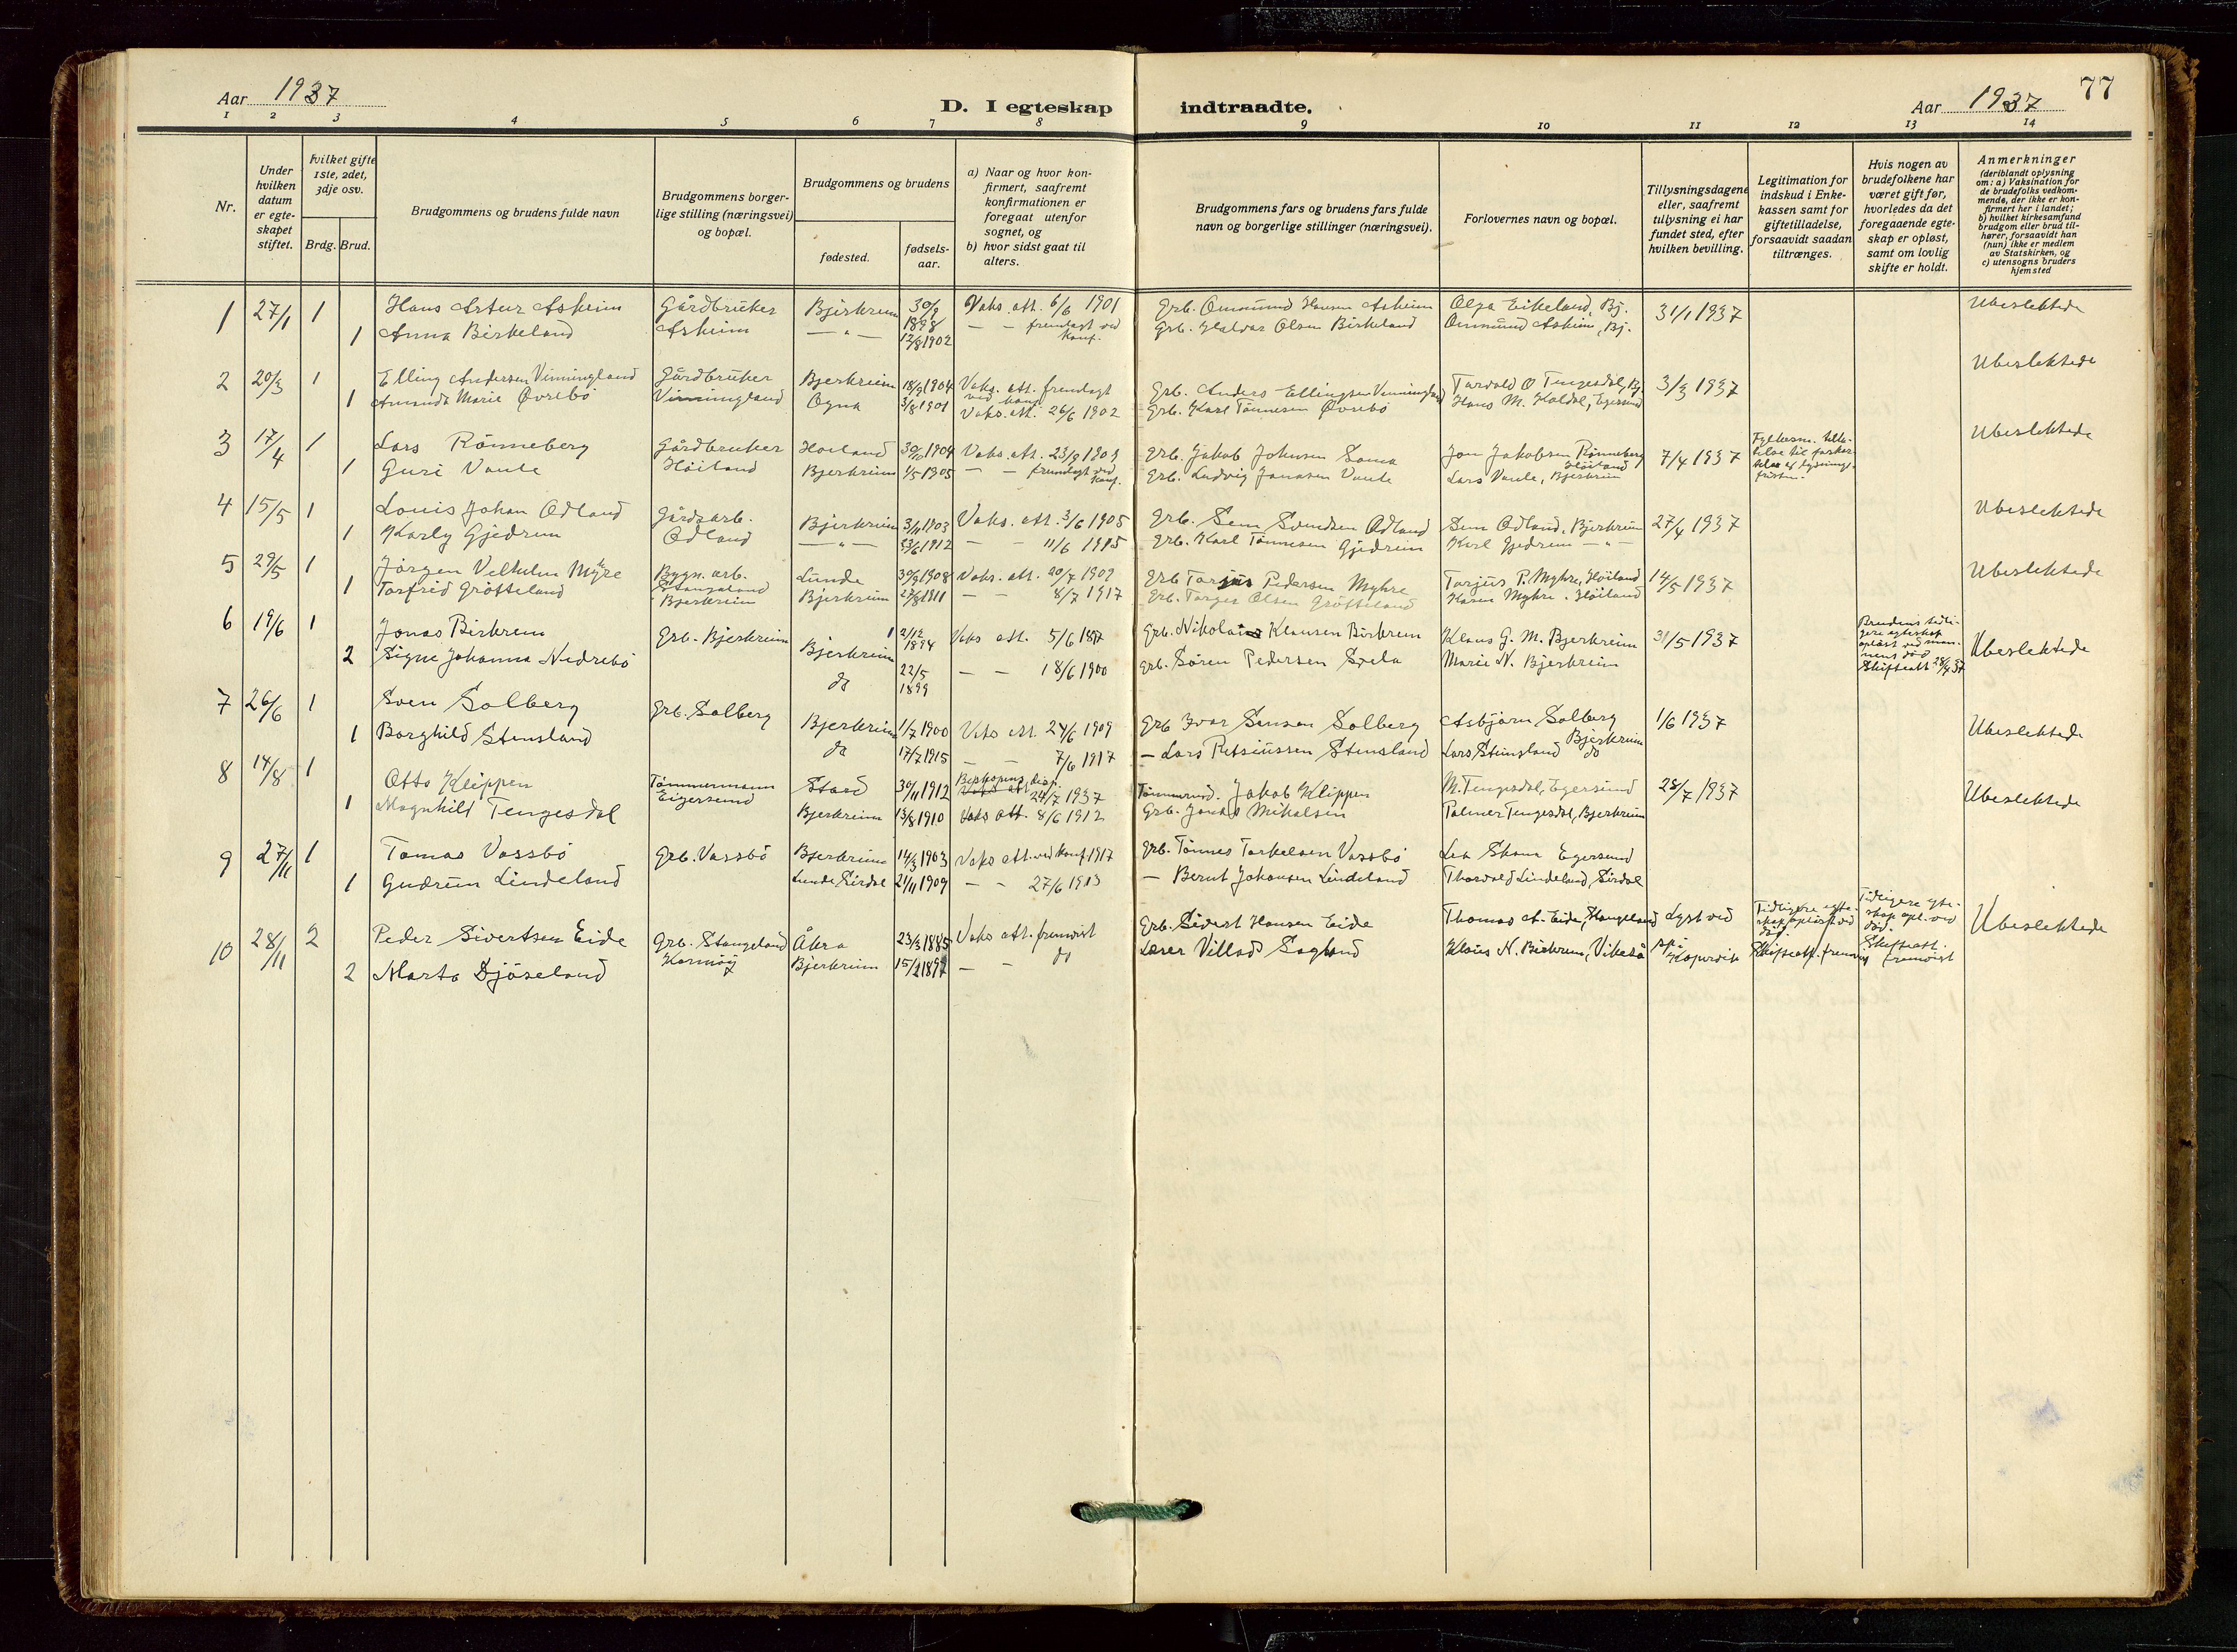 Aar 1937
D. I egteskap indtraadte.
Aar 1937
77
1 2 3 4 5 6 7 8 9 10 11 12 13 14
Nr.
Under hvilken datum er egteskapet stiftet.
hvilket gifte 1ste, 2det, 3dje osv.
Brdg. Brud.
Brudgommens og brudens fulde navn
Brudgommens borgerlige stilling (næringsvei) og bopæl.
Brudgommens og brudens
fødested.
fødselsaar.
a) Naar og hvor konfirmert, saafremt konfirmationen er foregaat utenfor sognet, og
b) hvor sidst gaat til alters.
Brudgommens fars og brudens fars fulde navn og borgerlige stillinger (næringsvei).
Forlovernes navn og bopæl.
Tillysningsdagene eller, saafremt tillysning ei har fundet sted, efter hvilken bevilling.
Legitimation for indskud i Enkekassen samt for giftetilladelse, forsaavidt saadan tiltrænges.
Hvis nogen av brudefolkene har været gift før, hvorledes da det foregaaende egteskap er opløst, samt om lovlig skifte er holdt.
Anmerkninger (deriblandt oplysning om: a) Vaksination for de brudefolks vedkommende, der ikke er konfirmert her i landet; b) hvilket kirkesamfund brudgom eller brud tilhører, forsaavidt han (hun) ikke er medlem av Statskirken, og c) utensogns bruders hjemsted
1 27/1 1 Hans Artur Asheim Gårdbruker Bjerkreim 30/9 1898 Vaks. att. 6/6 1901 Grb. Ommund Hansen Asheim Olga Eikeland, Bj. 31/1 1937 Ubeslektede
1 Anna Birkeland Asheim — " — 12/8 1902 — — fremlagt ved konf. Grb. Haldor Olsen Birkeland Ommund Asheim, Bj.
2 20/3 1 Elling Andersen Vinningland Gårdbruker Bjerkreim 18/9 1904 Vaks. att. fremlagt ved konf. Grb. Anders Ellingsen Vinningland Torvald O Tengesdal, Bj. 3/3 1937 Ubeslektede
1 Amanda Marie Øvrebö Vinningland Ogna 3/8 1901 Vaks. att. 26/6 1902 Grb. Karl Tönnesen Øvrebö Hans M. Koldal, Egersund
3 17/4 1 Lars Rönneberg Gårdbruker Höiland 30/10 1904 Vaks. att. 23/9 1903 Grb. Jakob Johnsen Soma Jon Jakobsen Rönneberg Höiland 7/4 1937 Fylkesm. tillatelse til forkortelse af lysningsfristen. Ubeslektede
1 Guri Vaule Höiland Bjerkreim 1/5 1905 — — fremlagt ved konf. Grb. Ludvig Jonassen Vaule Lars Vaule, Bjerkreim
4 15/5 1 Louis Johan Odland Gårdsarb. Bjerkreim 3/11 1903 Vaks. att. 3/6 1905 Grb. Sem Svendsen Odland Sem Odland, Bjerkreim 27/4 1937 Ubeslektede
1 Karly Gjedrem Odland — " — 23/6 1912 — — 11/6 1915 Grb. Karl Tönnesen Gjedrem Karl Gjedrem — " —
5 29/5 1 Jörgen Velhelm Myhre Bygn. arb. Lunde 30/9 1908 Vaks. att. 20/7 1909 Grb Tarjus Pedersen Myhre Tarjus P. Myhre, Höiland 14/5 1937 Ubeslektede
1 Torfrid Grötteland Stangeland Bjerkreim Bjerkreim 27/8 1911 — — 8/7 1917 Grb. Torger Olsen Grötteland Karen Myhre, Höiland
6 19/6 1 Jonas Birkrem Grb. Bjerkreim Bjerkreim 2/12 1894 Vaks att. 5/6 1897 Grb. Nikolai Klausen Birkrem Klaus G. M. Bjerkreim 31/5 1937 Brudens tidligere egteskap opløst ved mannens död Skifteatt 28/4 37 Ubeslektede
2 Signe Johanna Nedrebö do 22/5 1899 — — 18/6 1900 Grb. Sören Pedersen Svela Marie N. Bjerkreim
7 26/6 1 Sven Solberg Grb. Solberg Bjerkreim 1/7 1900 Vaks att. 24/6 1909 Grb Ivar Sensen Solberg Asbjörn Solberg Bjerkreim 1/6 1937 Ubeslektede
1 Borghild Stensland do 17/7 1915 — — 7/6 1917 — Lars Stensland Lars Stensland do
8 14/8 1 Otto Klippen Tömmermann Stord 30/11 1912 Biskopens disp. 24/7 1937 Tömmerm. Jakob Klippen M. Tengesdal, Egersund 28/7 1937 Ubeslektede
1 Magnhild Tengesdal Eigersund Bjerkreim 13/8 1910 Vaks att. 8/6 1912 Grb. Jonas Mikalsen Palmer Tengesdal, Bjerkreim
9 27/11 1 Tomas Vassbö Grb. Vassbö Bjerkreim 14/3 1903 Vaks att. ved konf 1917 Grb. Tönnes Torkelsen Vassbö Lea Skana Egersund
1 Gudrun Lindeland Lunde Sirdal 21/11 1909 — — 27/6 1913 — Bernt Johansen Lindeland Thorvald Lindeland, Sirdal
10 28/11 2 Peder Sivertsen Eide Grb. Stangeland Karmöy Åkra 23/3 1885 Vaks att. fremvist Grb. Sivert Hansen Eide Thomas A. Eide, Stangeland Lyst ved Kopervik Tidligere egteskap opløst ved död. Skifteatt. fremvist Tidligere egteskap opl. ved död. Skifteatt. fremvist Ubeslektede
2 Marta Djöseland Bjerkreim 15/2 1897 — — do Lærer Villad Sagland Klaus N. Birkrem, Vikeså